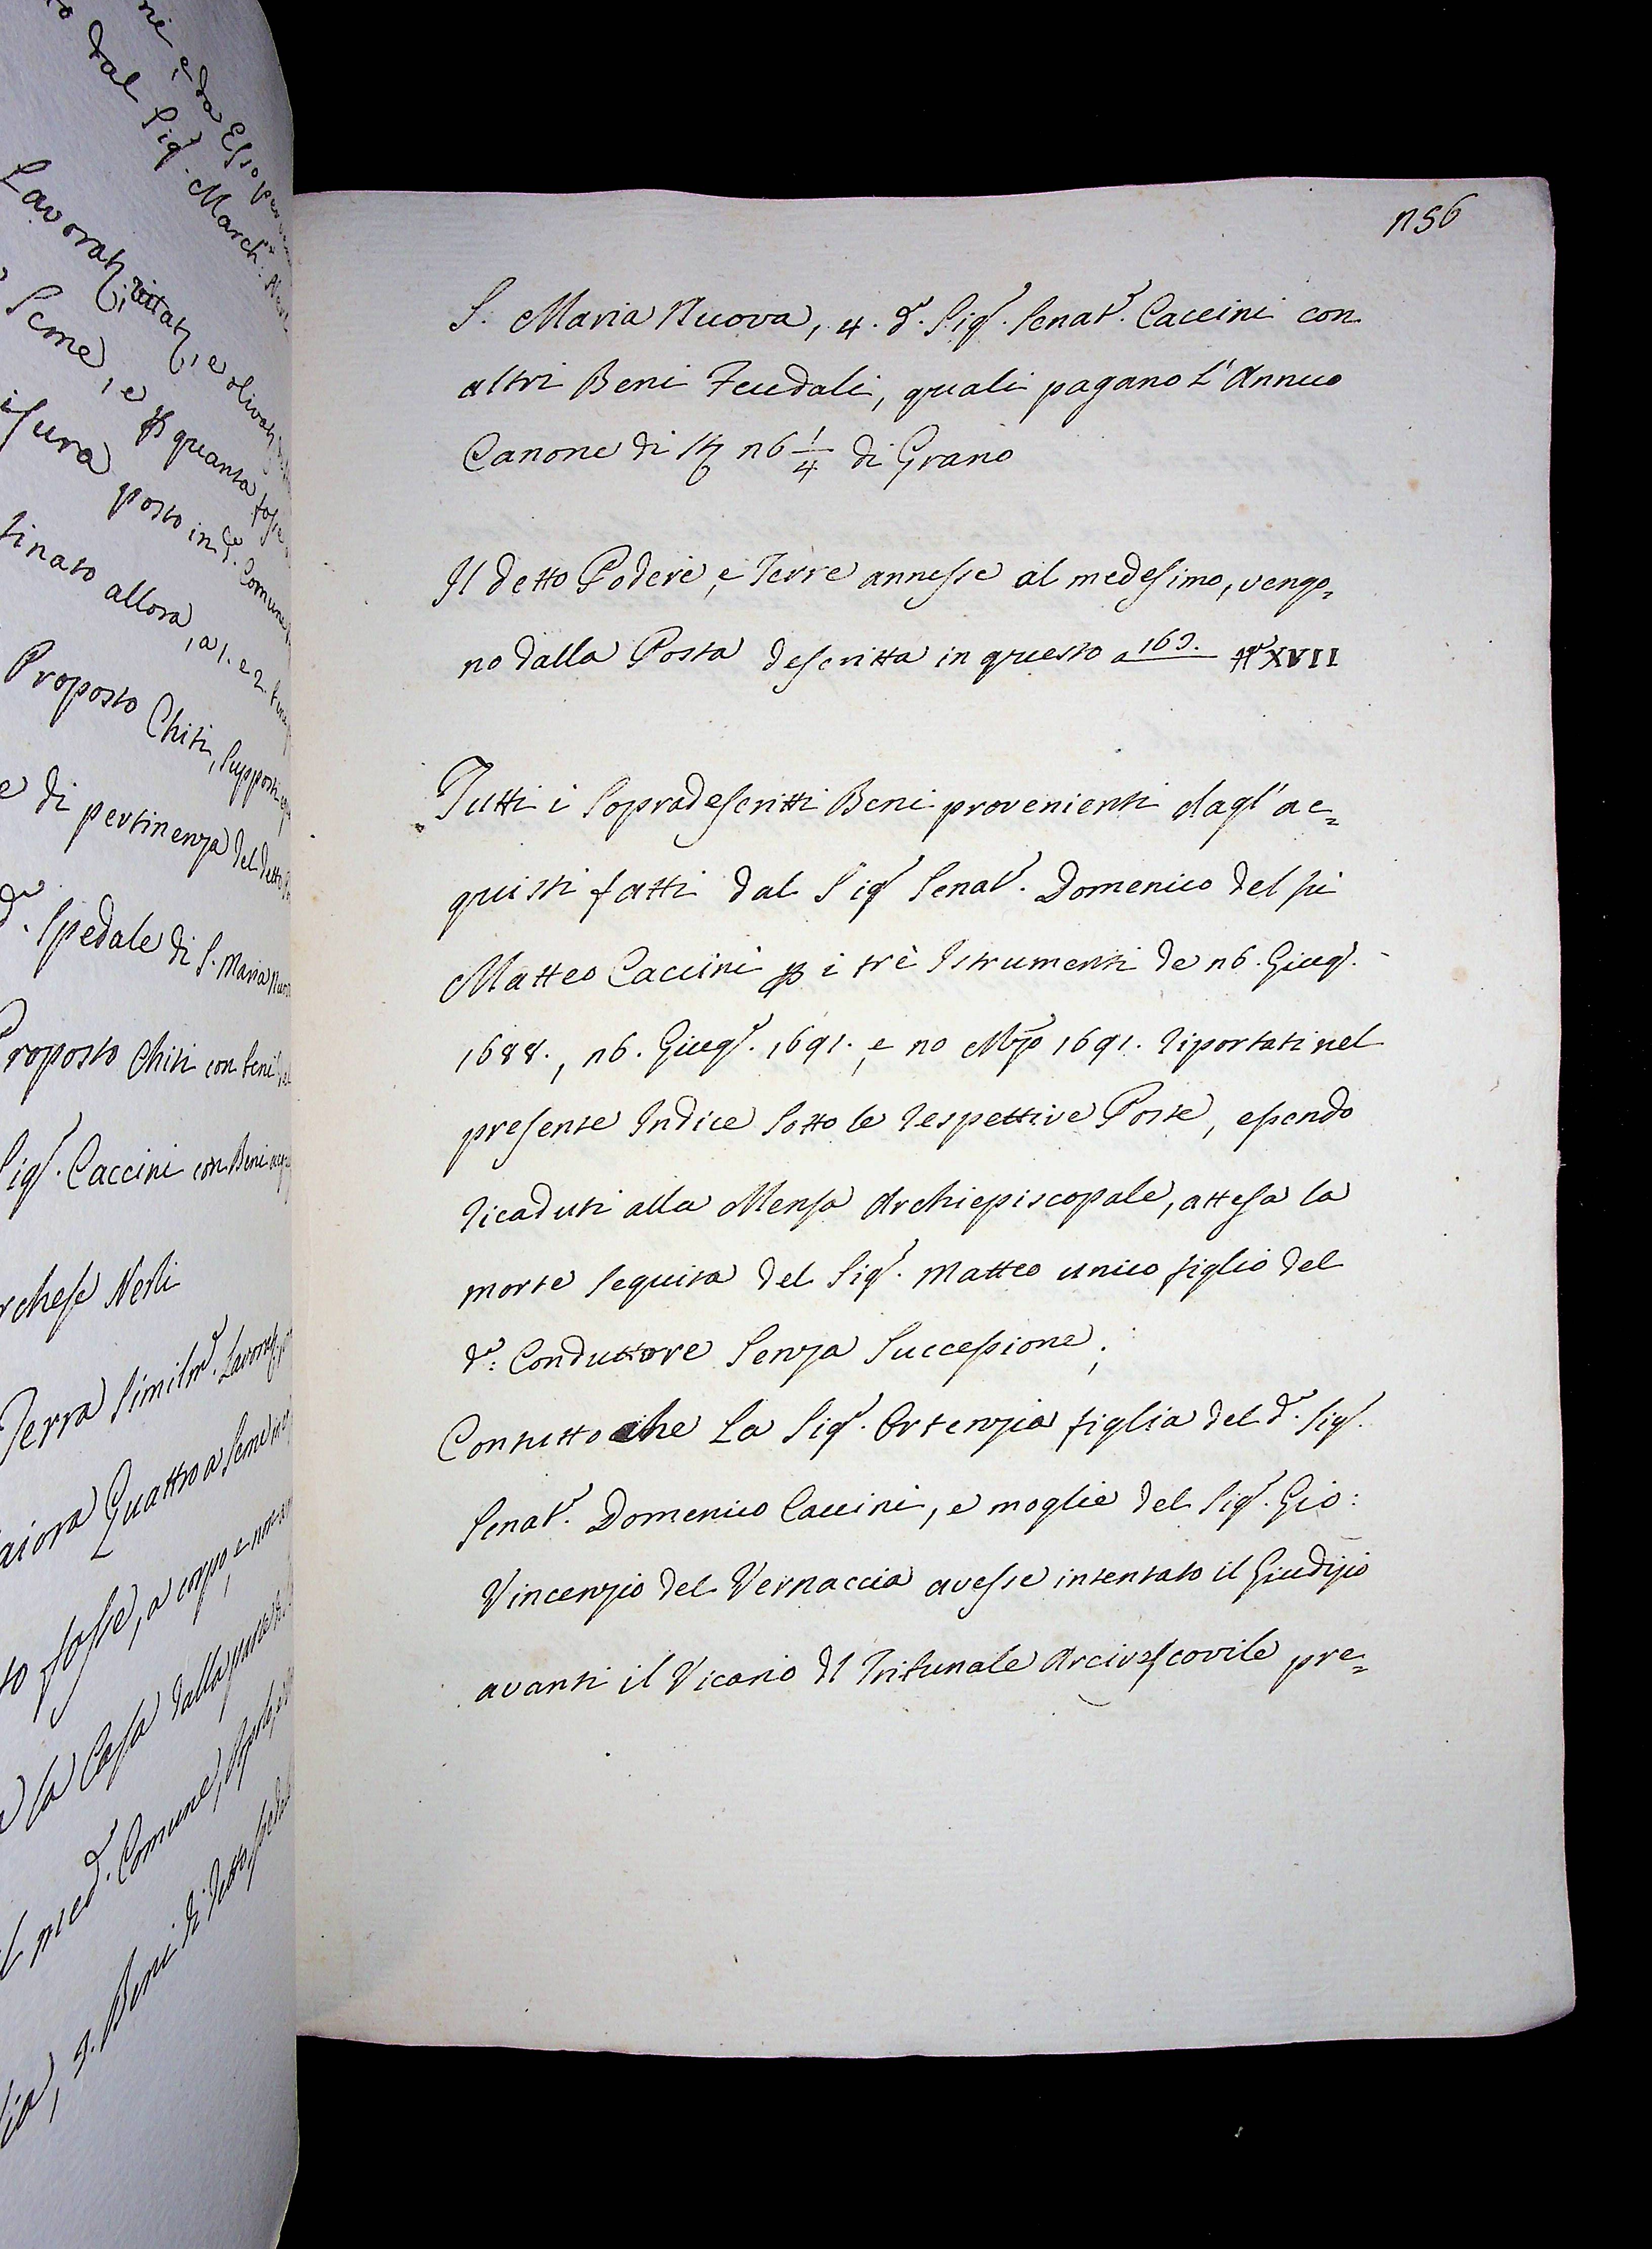 ni, e da Esso
dal Sig.r March:
Lavorat, vitat, e olivat
Seme, e p quanta fosse
isura posto in d.o Comune
tinato allora, a 1. e 2.
Proposto Chiti, Supposti
e di pertinenza del detto
d.o Spedale di S. Maria Nuov
Proposto Chiti con beni
Sig.r Caccini con Beni
rchese Nerli
Terra Similm.e Lavorat
aiora Quattro a Seme in
to fosse, a corpo, e non a
a la Casa dalla parte
l med.o Comune
3. Beni di detto
256
S. Maria Nuova, 4. d.o Sig.r Senat.e Caccini con
altri Beni Feudali, quali pagano L'Annuo
Canone di st.a 26 1/4 di Grano
Il detto Podere, e Terre annesse al medesimo, vengo=
no dalla Posta descritta in questo a 163. n.o XVII
Tutti i Sopradescritti Beni provenienti dagl'ac=
quisti fatti dal Sig.r Senat.e Domenico del fù
Matteo Caccini p i trè Istrumenti de 26. Giug.o
1688., 26. Giug.o 1691. e 20 Mzo 1691. riportati nel
presente Indice Sotto le respettive Poste, essendo
ricaduti alla Mensa Archiepiscopale, attesa la
morte Seguita del Sig.r Matteo unico figlio del
d.o Conduttore Senza Successione;
Contutto che La Sig.ra Ortenzia figlia del d.o Sig.r
Senat.e Domenico Caccini, e moglie del Sig.r Gio:
Vincenzio del Vernaccia avesse intentato il Giudizio
avanti il Vicario dl Tribunale Arcivescovile pre=